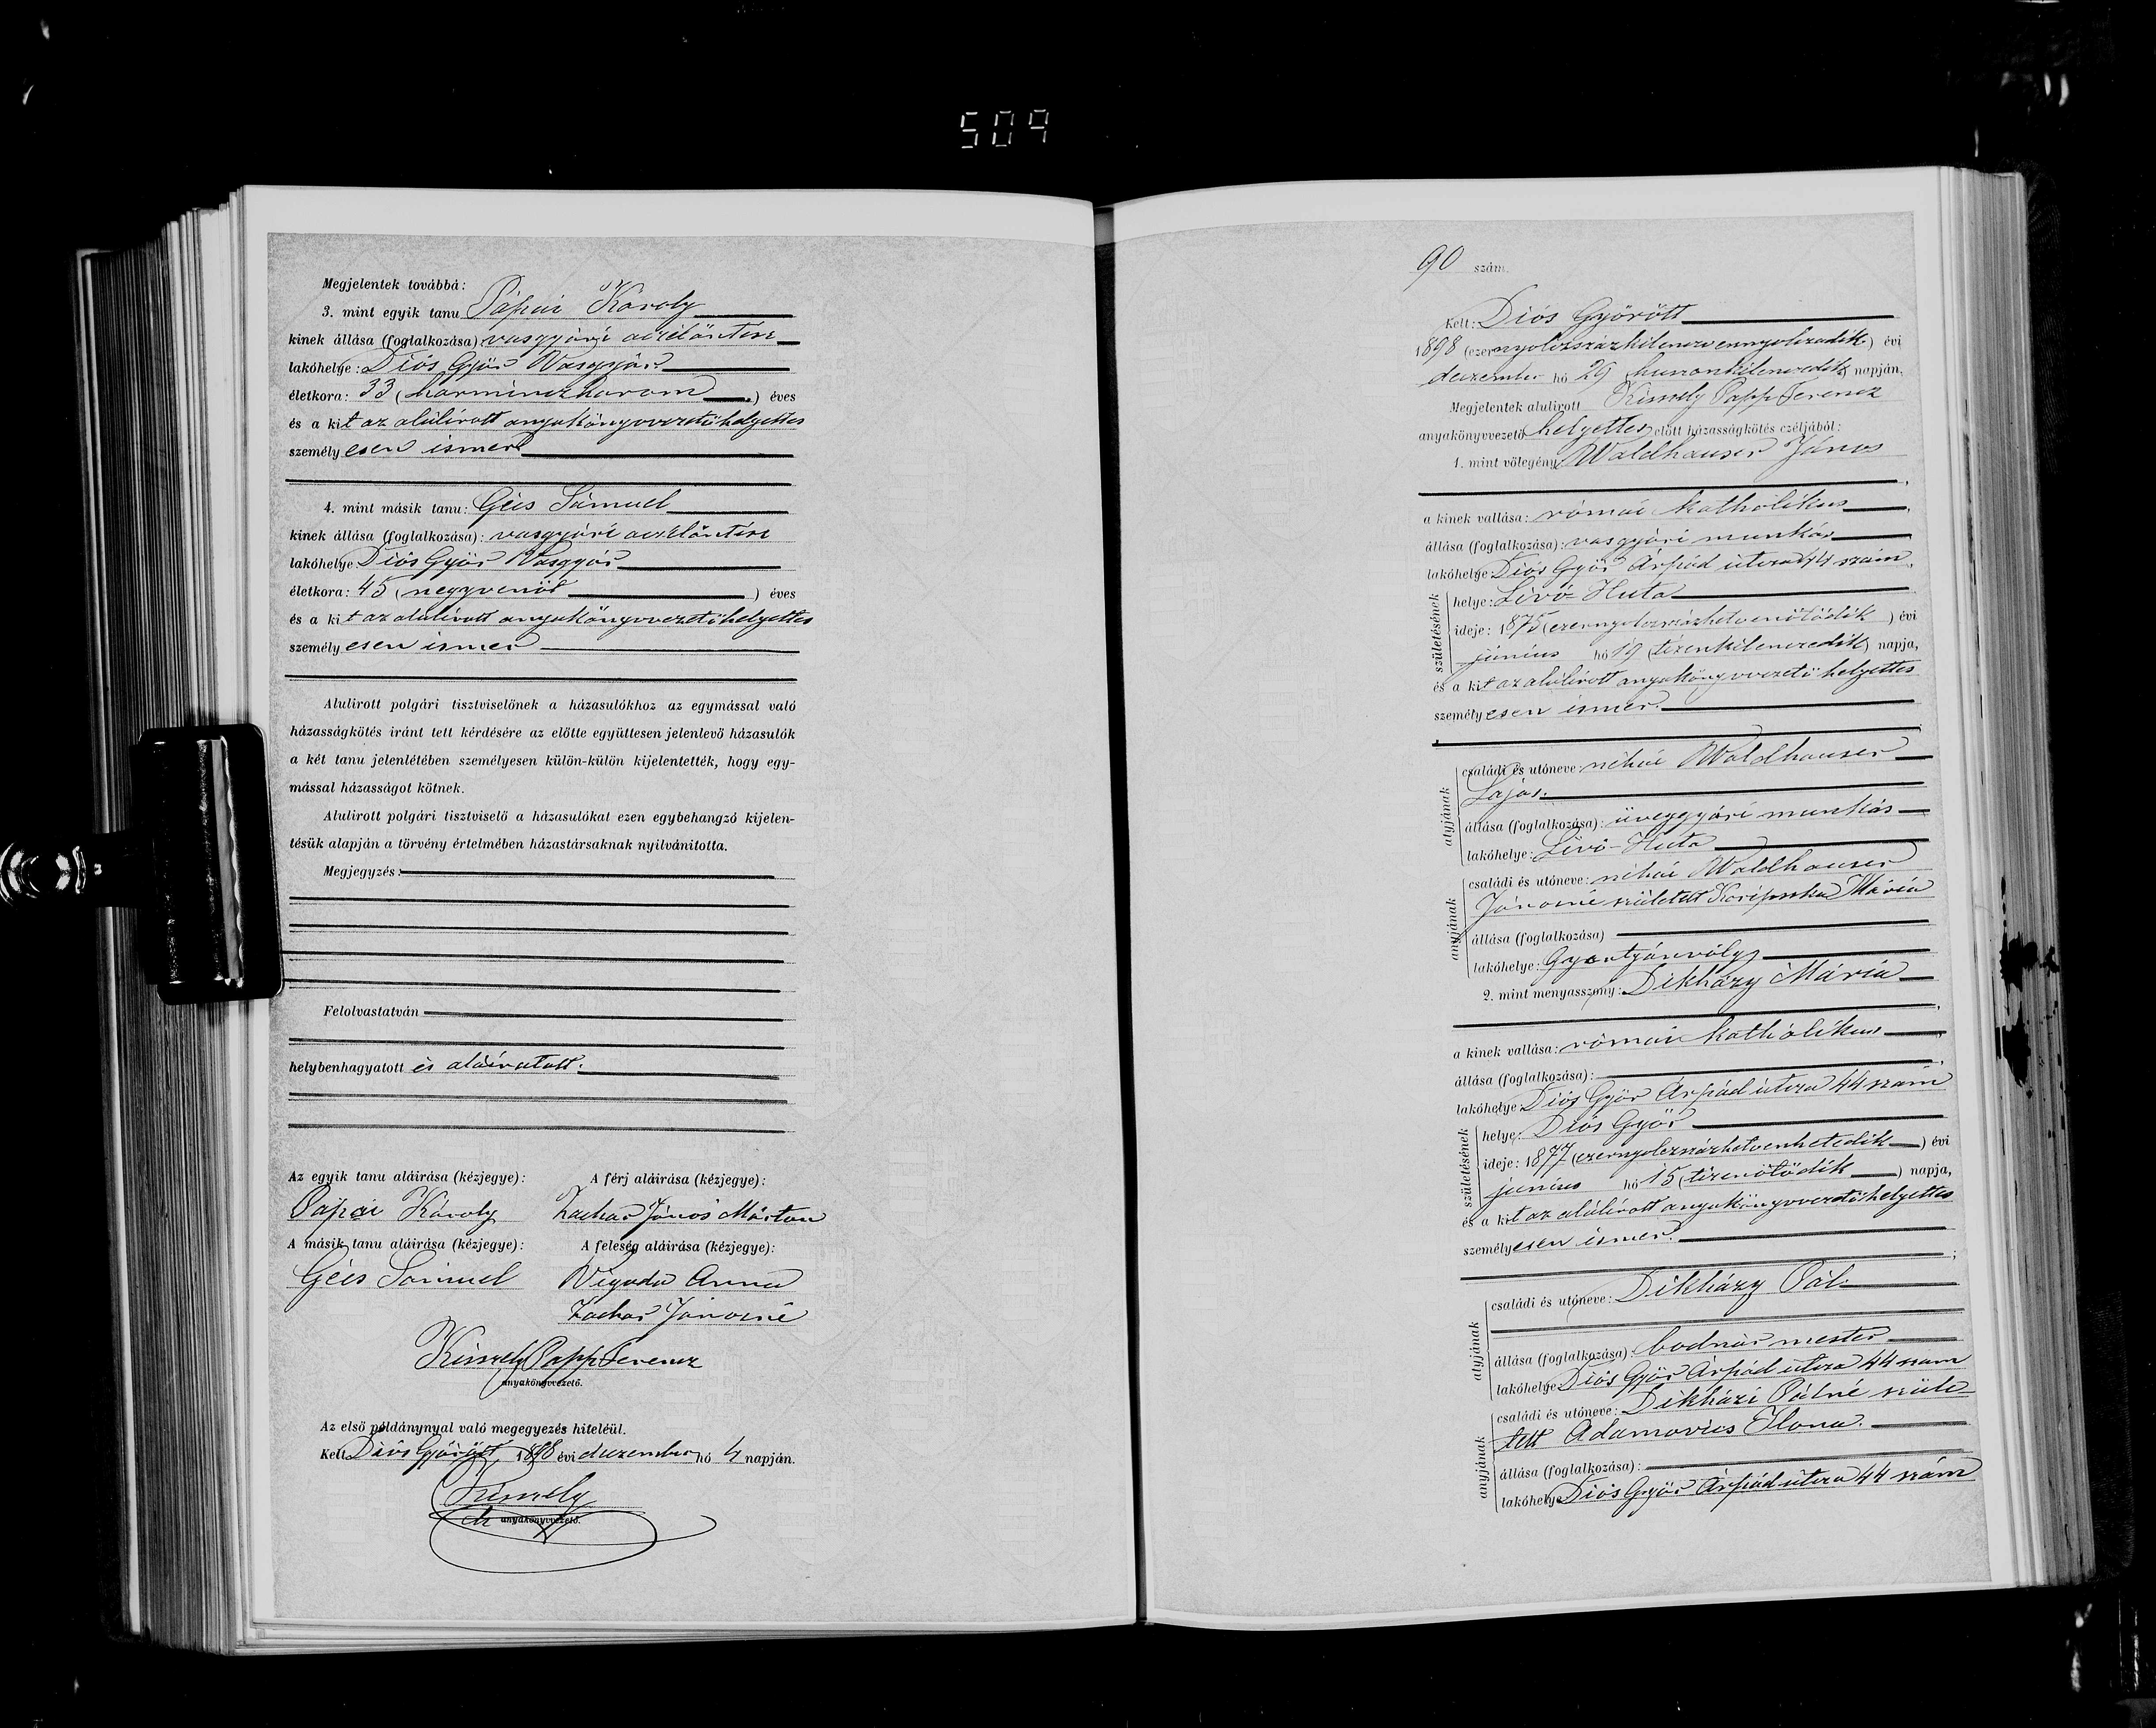 509
Megjelentek továbbá:
3. mint egyik tanu Pápai Károly
kinek állása (foglalkozása): vasgyári aczélöntész
lakóhelye: Diós Győr Vasgyár
életkora: 33 (harminczharom) éves
és a kit az alúlírott anyakönyvvezető helyettes
személyesen ismer
4. mint másik tanu: Géis Sámuel
kinek állása (foglalkozása): vasgyári aczélöntész
lakóhelye Diós Győr Vasgyár
életkora: 45 (negyvenöt) éves
és a kit az alulírott anyakönyvvezető helyettes
személyesen ismer
Alulirott polgári tisztviselőnek a házasulókhoz az egymással való
házasságkötés iránt tett kérdésére az előtte együttesen jelenlevő házasulók
a két tanu jelenlétében személyesen külön-külön kijelentették, hogy egy-
mással házasságot kötnek.
Alulirott polgári tisztviselő a házasulókat ezen egybehangzó kijelen-
tésük alapján a törvény értelmében házastársaknak nyilvánította.
Megjegyzés:
Felolvastatván
helybenhagyatott és aláíratott.
Az egyik tanu aláirása (kézjegye): A férj aláirása (kézjegye):
Pápai Károly Zachar János Márton
A másik tanu aláirása (kézjegye): A feleség aláirása (kézjegye):
Géis Sámuel Vigoda Anna
Zachar Jánosné
Kisszely Papp Ferencz
anyakönyvvezető.
Az első példánynyal való megegyezés hiteléül.
Kelt Diós Győrött, 1898 évi deczember hó 4 napján.
Kisszely
anyakönyvvezető.
90 szám.
Kelt: Diós Győrött
1898 (ezernyolczszázkilenczvennyolczadik) évi
deczember hó 29 (huszonkilenczedik) napján.
Megjelentek alulirott Kisszely Papp Ferencz
anyakönyvvezető helyettes előtt házasságkötés czéljából:
1. mint vőlegény Waldhauser János
a kinek vallása: római katholikus
állása (foglalkozása): vasgyári munkás
lakóhelye: Diós Győr Árpád útcza 44 szám
születésének
helye: Lívó-Huta
ideje: 1875 (ezernyolczszázhetvenötödik) évi
június hó 19 (tizenkilenczedik) napja,
és a kit az alúlírott anyakönyvvezető helyettes
személyesen ismer.
atyjának
családi és utóneve: néhai Waldhauser
Lajos.
állása (foglalkozása): üveggyári munkás
lakóhelye: Lívó-Huta
anyjának
családi és utóneve: néhai Waldhauser
Jánosné született Mária
állása (foglalkozása)
lakóhelye:
2. mint menyasszony: Dikházy Mária
a kinek vallása: római katholikus
állása (foglalkozása):
lakóhelye Diós Győr Árpád útcza 44 szám
születésének
helye: Diós Győr
ideje: 1877 (ezernyolczszázhetvenhetedik) évi
június hó 15 (tizenötödik) napja,
és a kit az alúlírott anyakönyvvezető helyettes
személyesen ismer.
atyjának
családi és utóneve: Dikházy Pál
állása (foglalkozása): bodnár mester
lakóhelye Diós Győr Árpád útcza 44 szám
anyjának
családi és utóneve: Dikházi Pálné szüle
tett Adamovics Ilona.
állása (foglalkozása):
lakóhelye Diós Győr Árpád útcza 44 szám